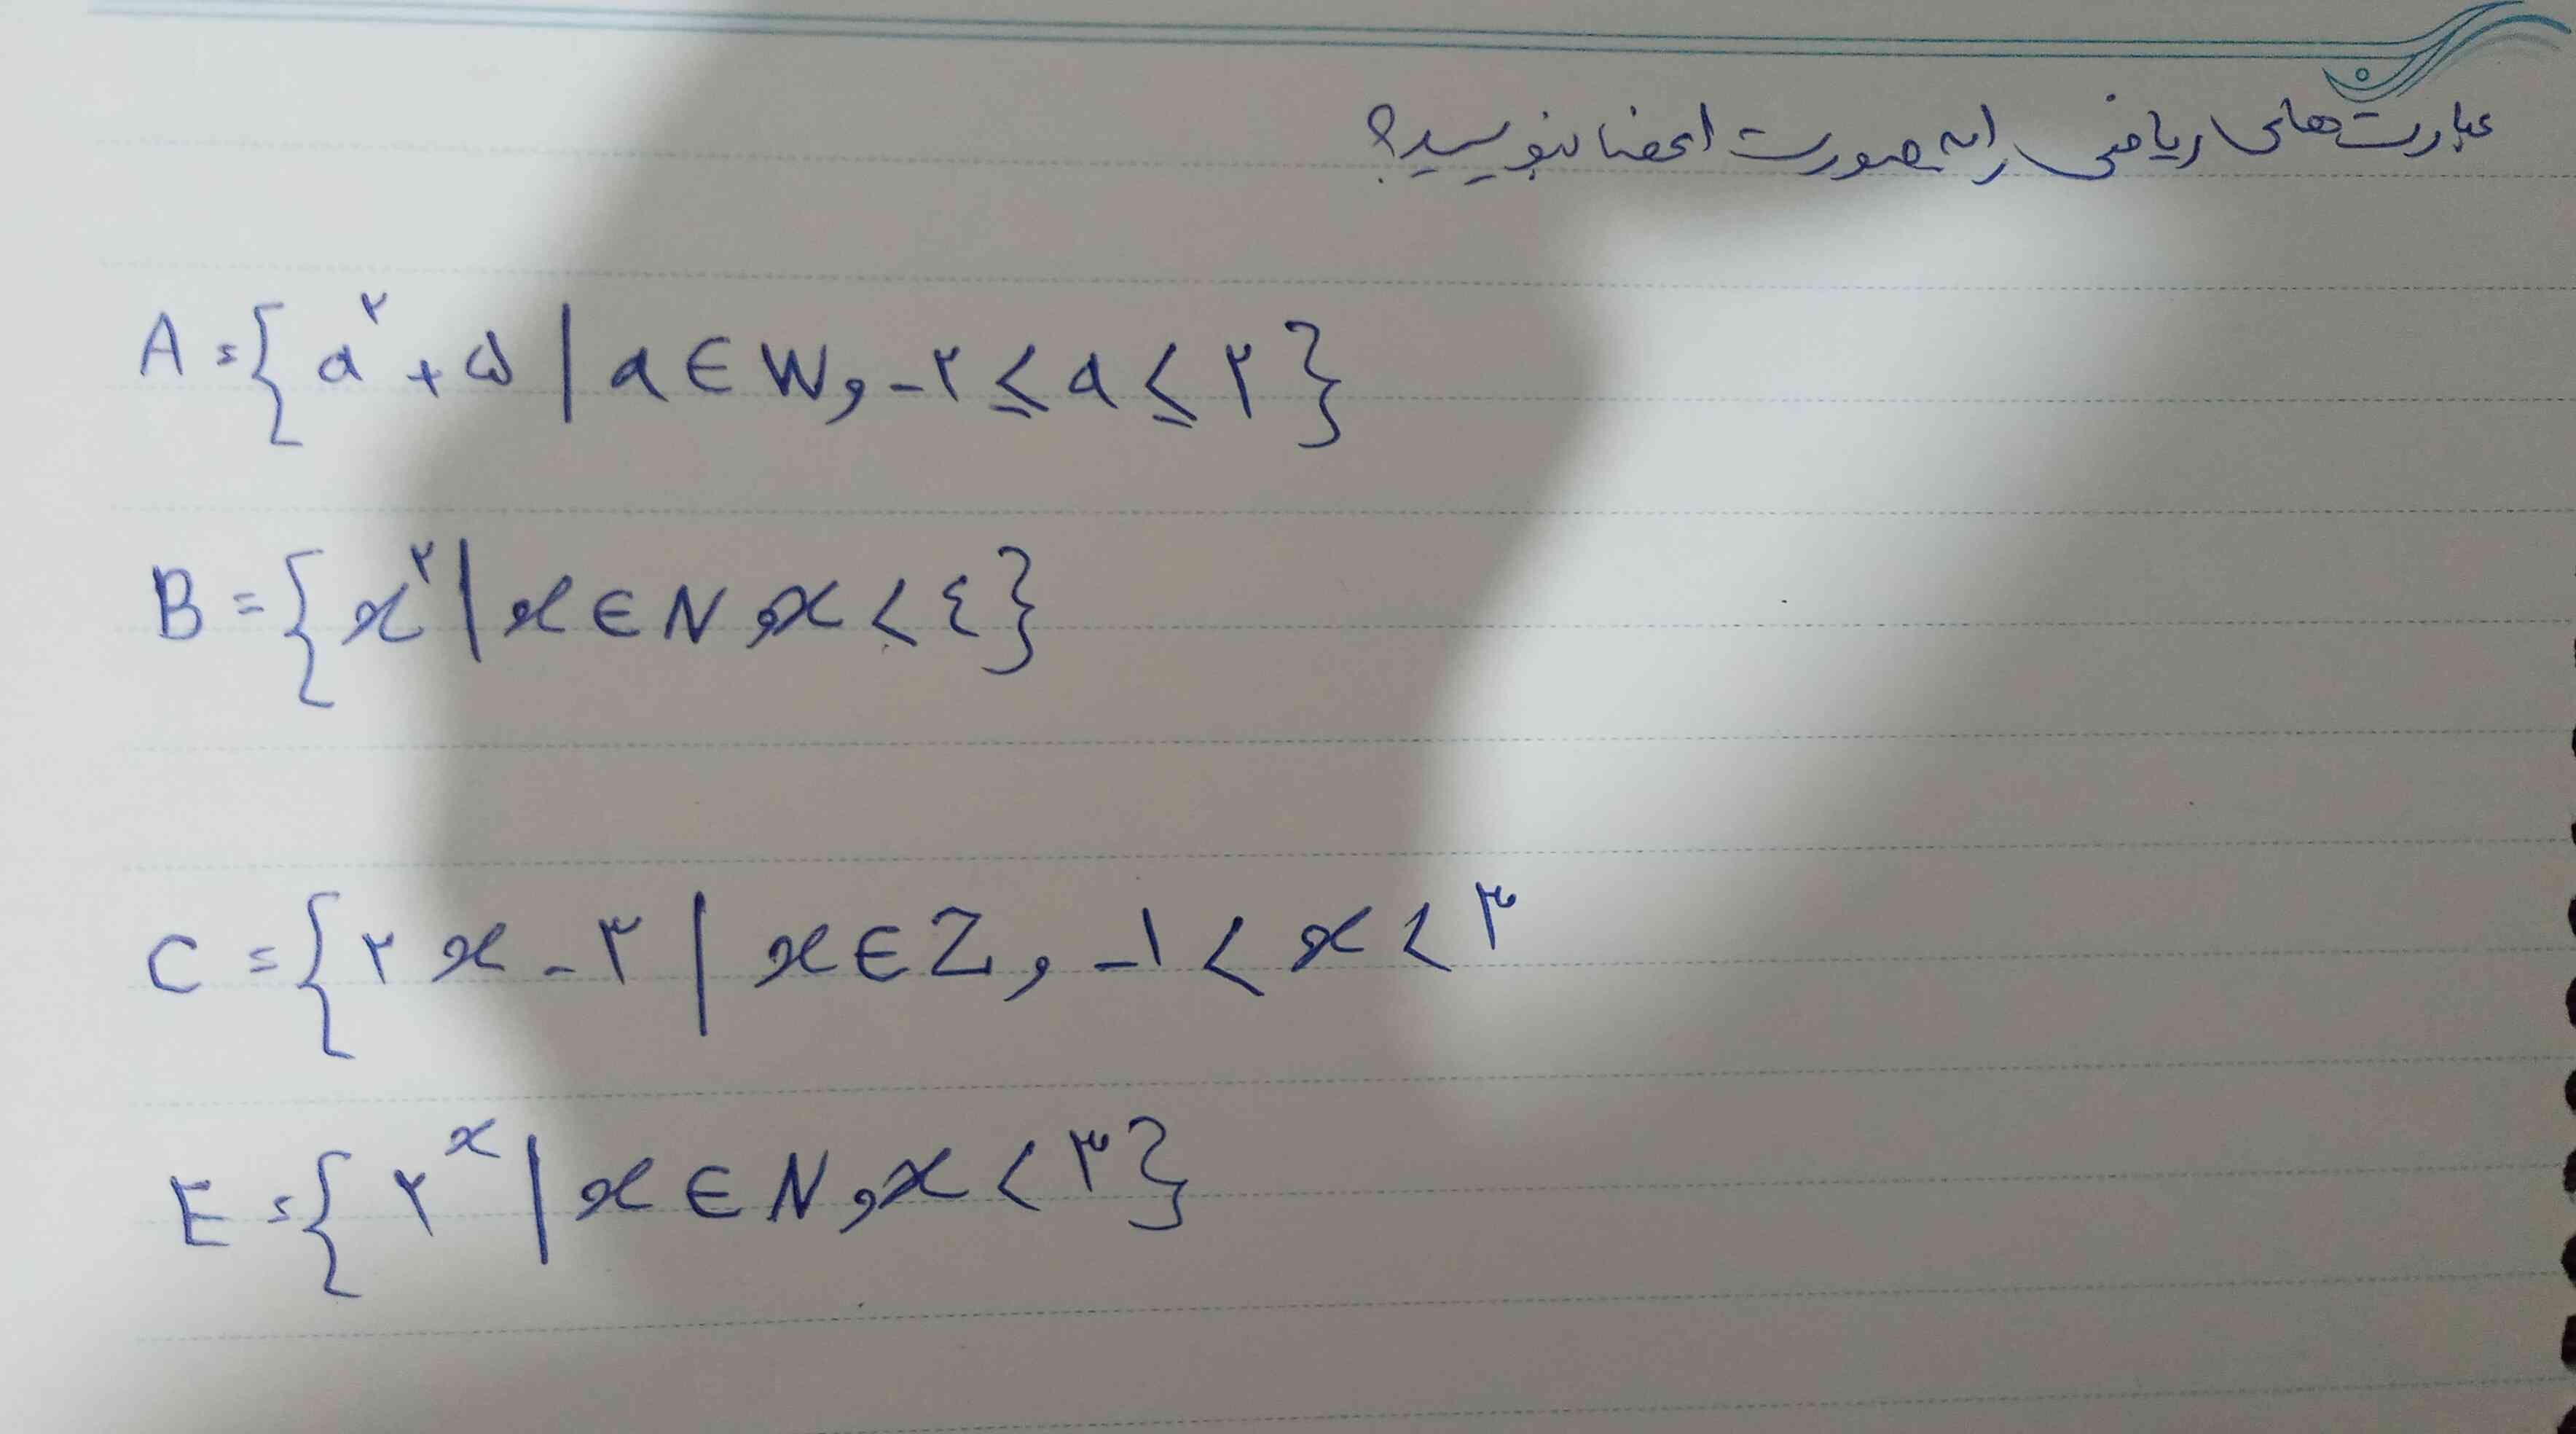 عبارت‌های ریاضی را به صورت اعضا بنویسید؟
A = { a^۲ + ۵ | a ∈ W, -۲ ≤ a ≤ ۲ }
B = { x^۲ | x ∈ N, x < ٤ }
C = { ۲x - ۳ | x ∈ Z, -۱ < x < ۳
E = { ۲^x | x ∈ N, x < ۳ }